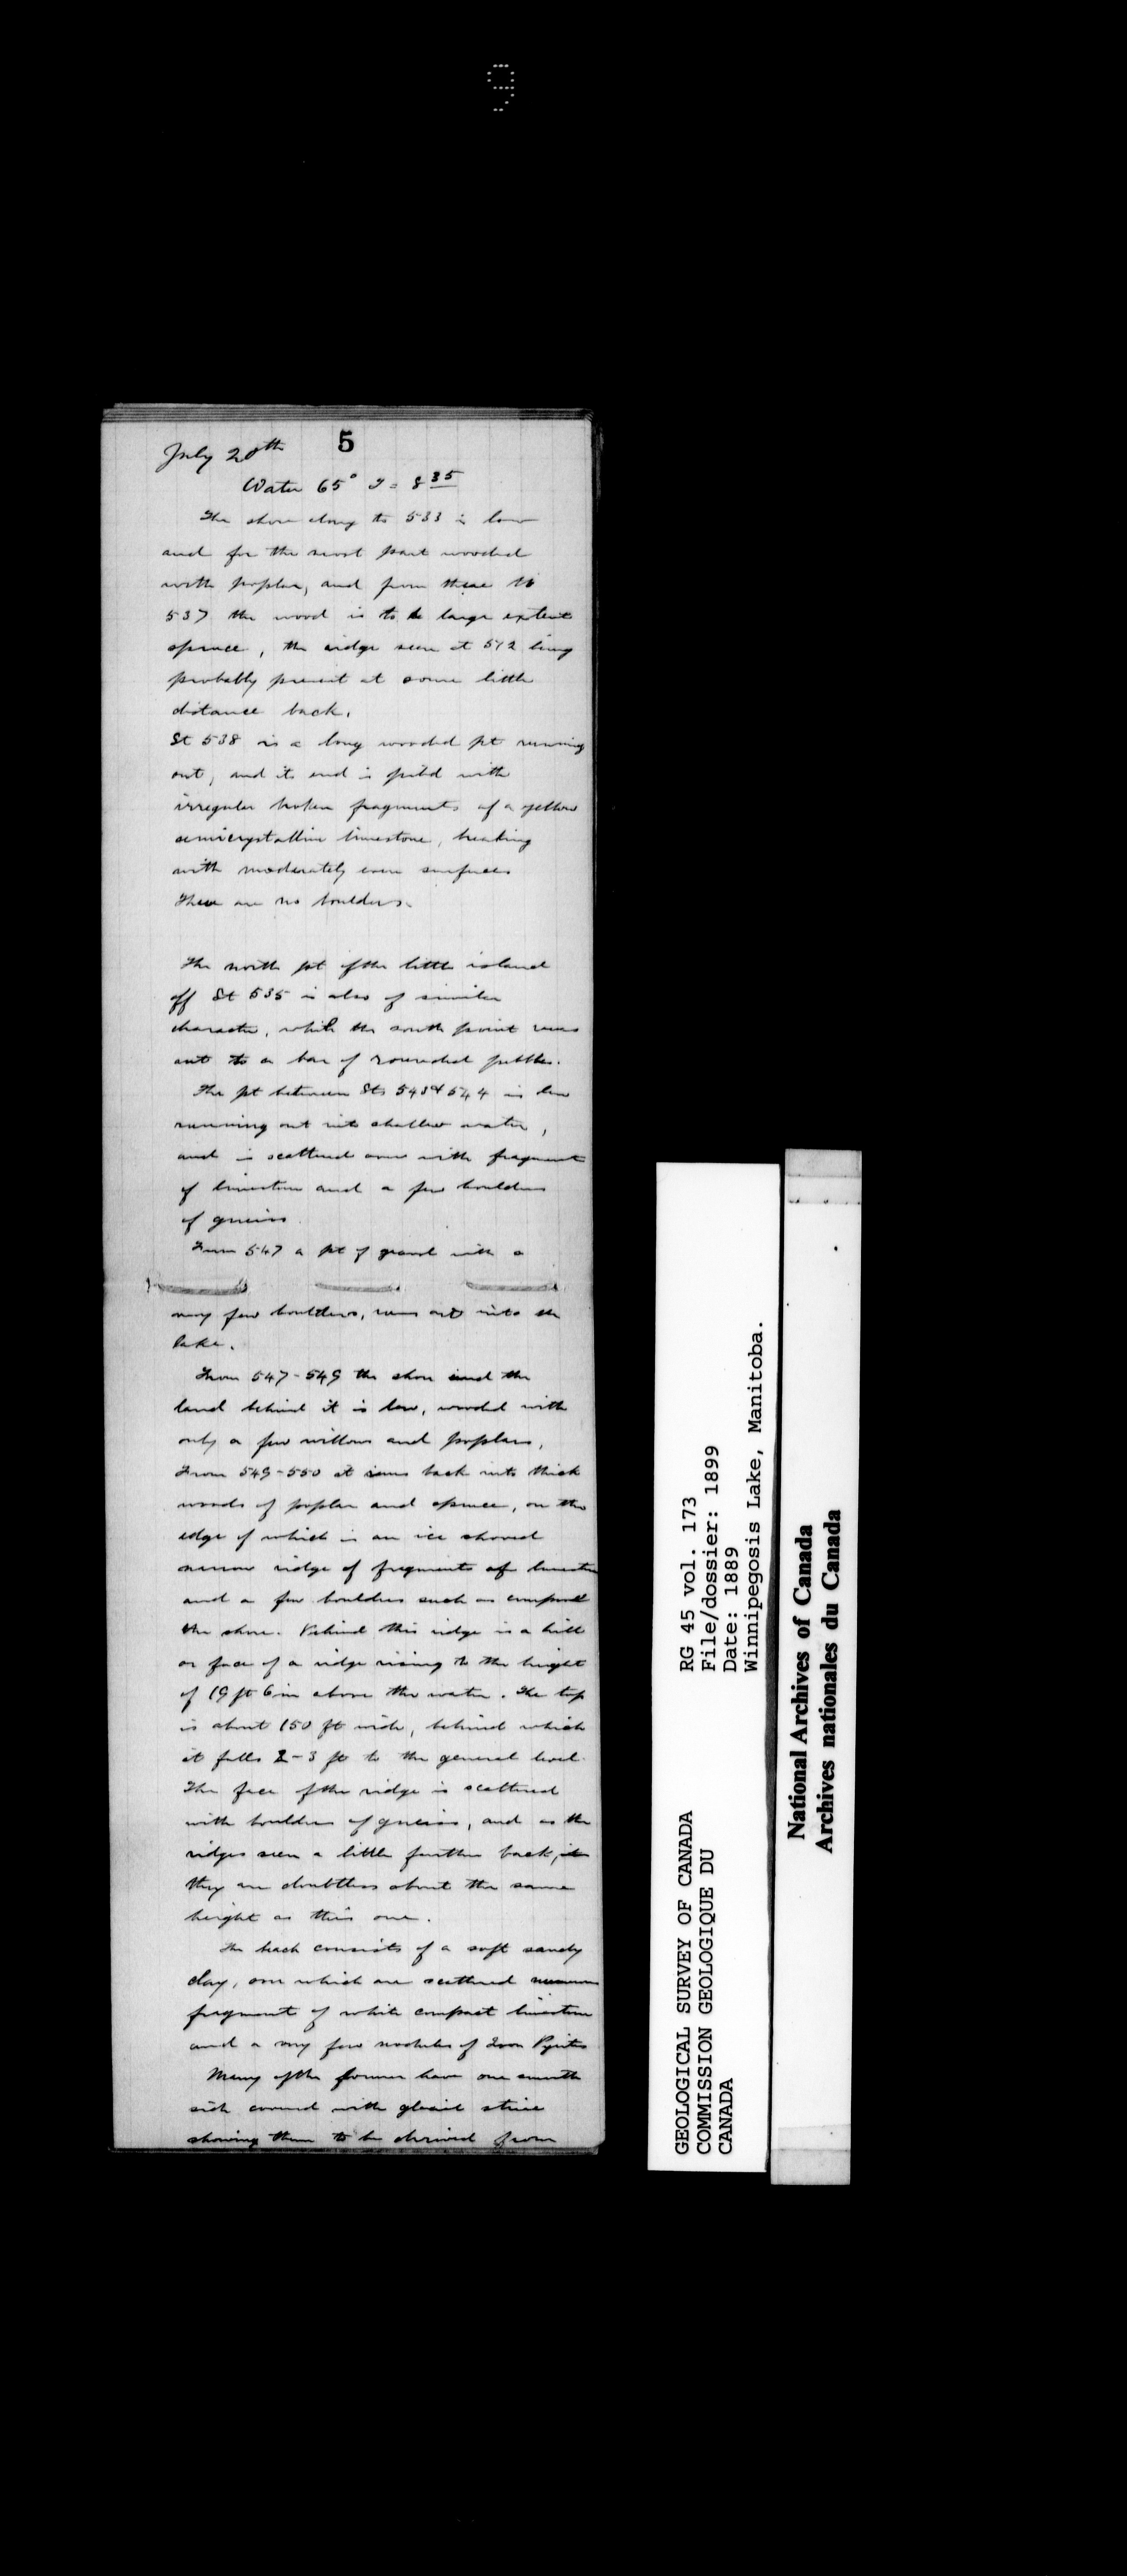 9
5
July 20th
Water 65° T = 8 35
The shore along to 533 is low
and for the most part wooded
with poplar, and from there to
537 the wood is to a large extent
spruce, the ridge seen at 512 being
probably present at some little
distance back.
St 538 is a long wooded pt running
out, and its end is piled with
irregular broken fragments of a yellow
semicrystalline limestone, breaking
with moderately even surfaces
There are no boulders.
The north pt of the little island
off St 535 is also of similar
character, while the south point runs
out to a bar of rounded pebbles.
The pt between Sts 543 & 544 is low
running out into shallow water,
and is scattered over with fragments
of limestone and a few boulders
of gneiss
From 547 a pt of gravel with a
very few boulders, runs out into the
lake.
From 547-549 the shore and the
land behind it is low, wooded with
only a few willows and poplars,
From 549-550 it runs back into thick
woods of poplar and spruce, on the
edge of which is an ice shoved
narrow ridge of fragments of limestone
and a few boulders such as compose
the shore. Behind this ridge is a hill
or face of a ridge rising to the height
of 19 ft 6 in above the water. The top
is about 150 ft wide, behind which
it falls 2-3 ft to the general level.
The face of the ridge is scattered
with boulders of gneiss, and as the
ridges seen a little further back,
they are doubtless about the same
height as this one.
The beach consists of a soft sandy
clay, over which are scattered numerous
fragments of white compact limestone
and a very few nodules of Iron Pyrites
Many of the former have one smooth
side covered with glacial striae
showing them to be derived from
GEOLOGICAL SURVEY OF CANADA
COMMISSION GEOLOGIQUE DU
CANADA
RG 45 vol. 173
File/dossier: 1899
Date: 1889
Winnipegosis Lake, Manitoba.
National Archives of Canada
Archives nationales du Canada